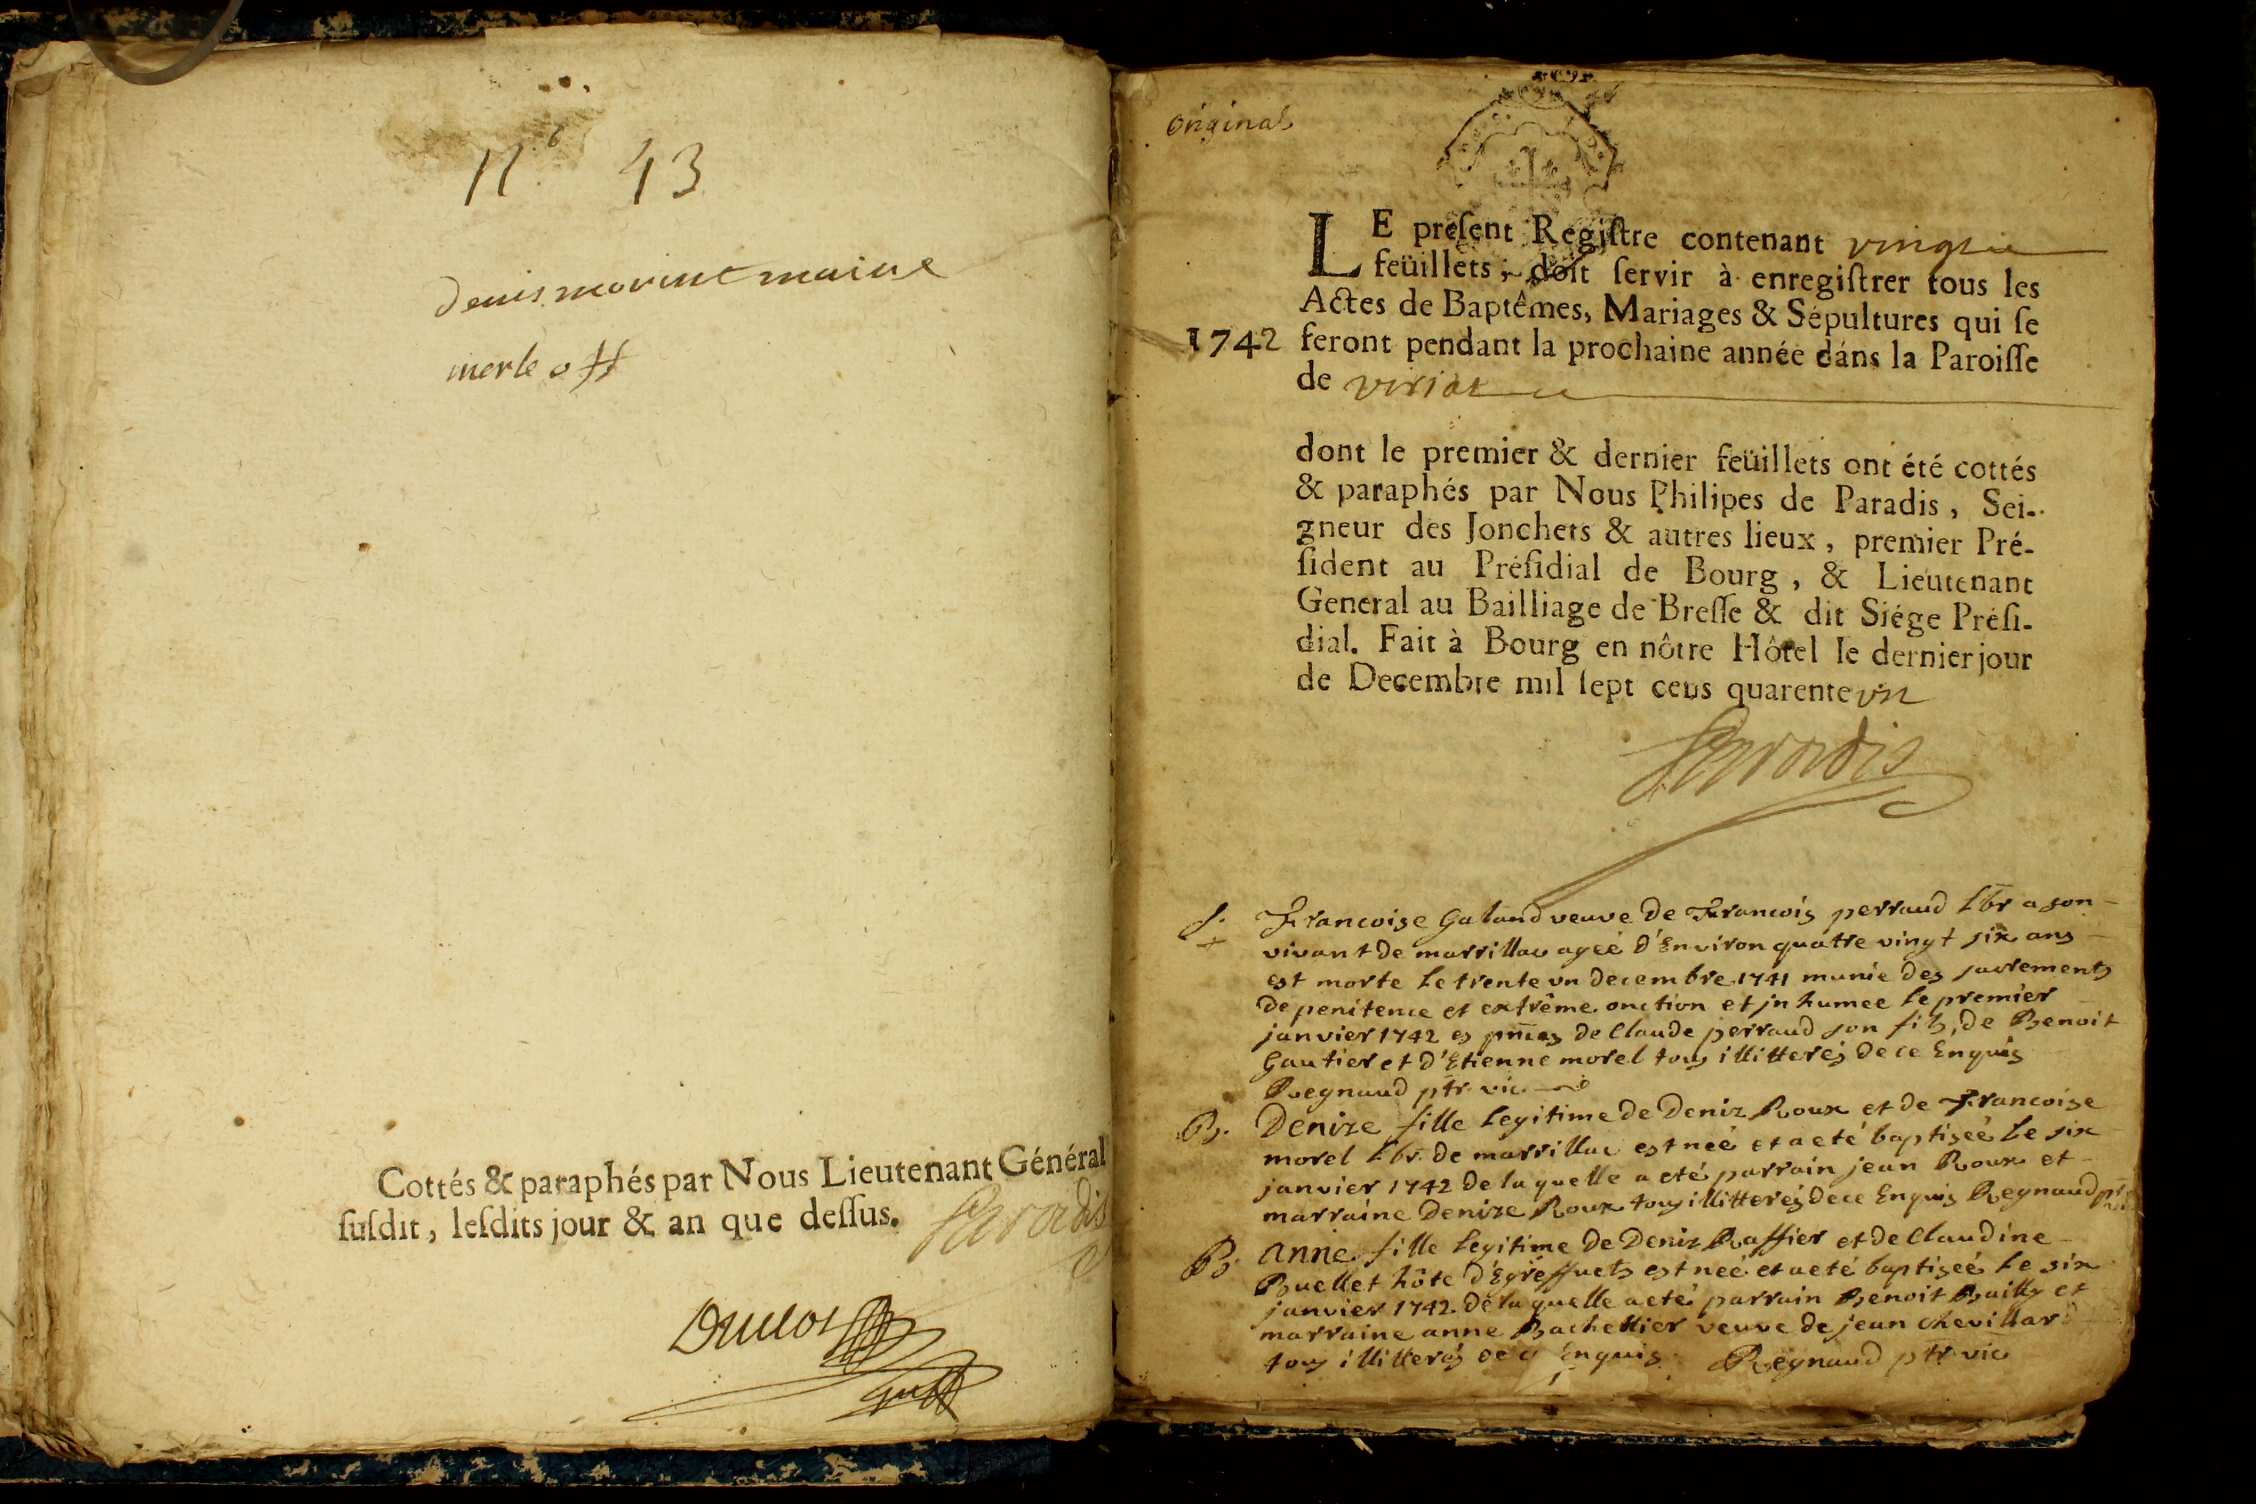 N.º 43
merle
Cottés & paraphés par Nous Lieutenant Général
ſuſdit, leſdits jour & an que deſſus. Paradis
Duclos
Original
LE préſent Regiſtre contenant vingt
feüillets, doit ſervir à enregiſtrer tous les
Actes de Baptêmes, Mariages & Sépultures qui ſe
1742 feront pendant la prochaine année dáns la Paroiſſe
de viriat
dont le premier & dernier feüillets ont été cottés
& paraphés par Nous Philipes de Paradis, Sei-
gneur des Jonchets & autres lieux, premier Pré-
ſident au Préſidial de Bourg, & Lieutenant
General au Bailliage de Breſſe & dit Siége Préſi-
dial. Fait à Bourg en nôtre Hôtel le dernier jour
de Decembre mil ſept cens quarente vn
Paradis
S. Francoise Galand veuve de Francois perraud lbr a son
vivant de marrillac ageé d'Environ quatre vingt six ans
est morte le trente vn decembre 1741 munie des sacrements
de penitence et extrême onction et inhumee le premier
janvier 1742 es pñces de Claude perraud son fils, de Benoit
Gautier et d'Etienne morel tous illitterés de ce Enquis
Regnaud ptr vic
B. Denize fille legitime de Deniz Roux et de Francoise
morel lbr. de marrillac est neé et a eté baptiseé le six
janvier 1742 de laquelle a eté parrain jean Roux et
marraine Denize Roux tous illitterés de ce Enquis Regnaud ptr
B. anne fille legitime de Deniz Raffier et de Claudine
Buellet hôte d'Egreffuets est neé et a eté baptiseé le six
janvier 1742. de laquelle a eté parrain Benoit Bailly et
marraine anne Bachellier veuve de jean chevillard
tous illitterés de ce Enquis. Regnaud ptr vic